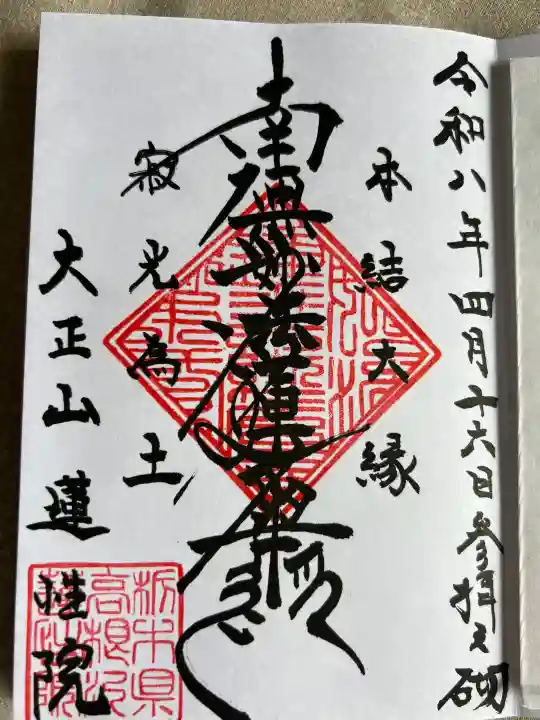 令和八年四月十六日参拝之砌
本結大縁
南無妙法蓮華経
寂光為土
大正山蓮
院
栃木県
高根沢